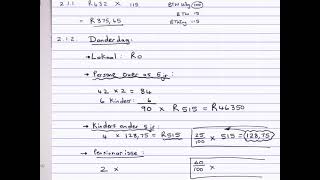 2.1.1 R432 × 115 BTW Uitg 100
BTW 15
= R375,65 BTW Ing 115
2.1.2. Donderdag:
→ Lokaal: R0
→ Persone ouer as 5 jr:
42 × 2 = 84
6 Kinders: 6
90 × R515 = R46350
→ Kinders onder 5 jr
4 × 128,75 = R515
25/100 × 515 = 128,75
→ Pensionarisse:
2 ×
60/100 ×